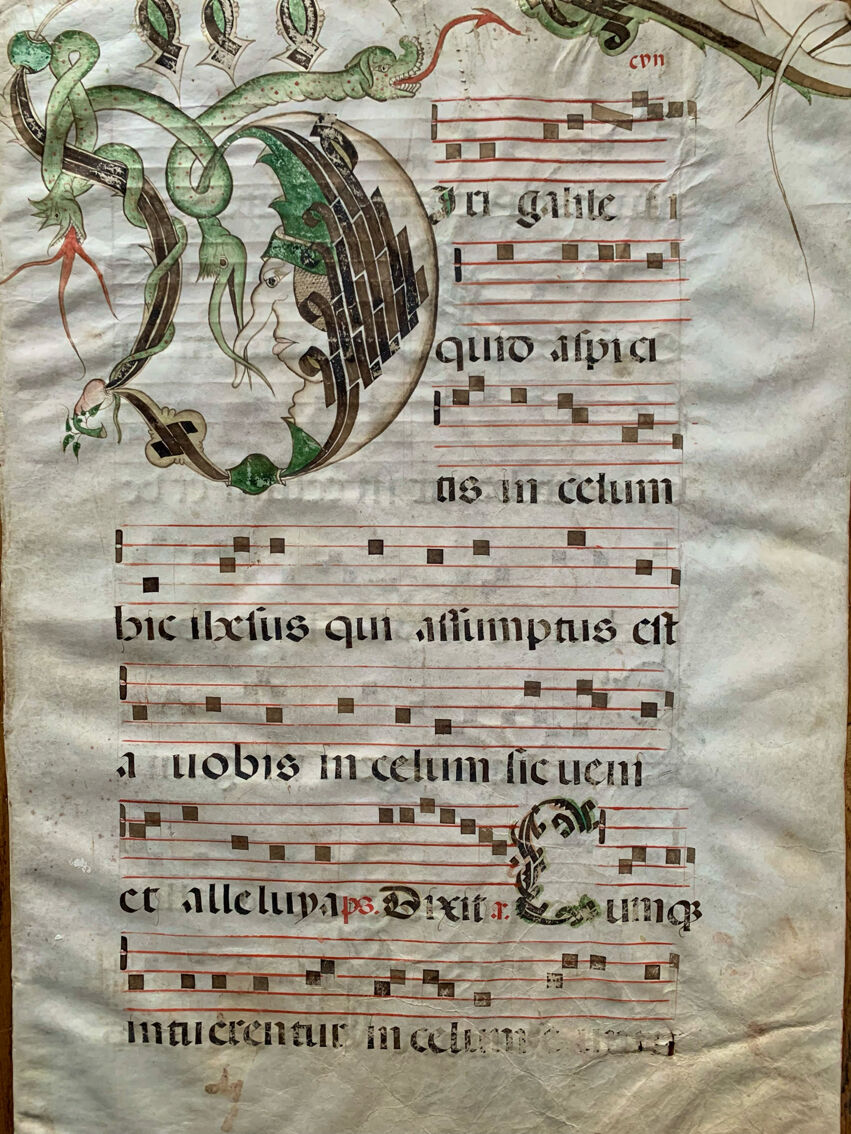 cvn
Viri galile i
quid aspici
tis in celum
hic ihesus qui assumptus est
a uobis in celum sic ueni
et alleluya ps. Dixit a. Cumqz
intuerentur in celum